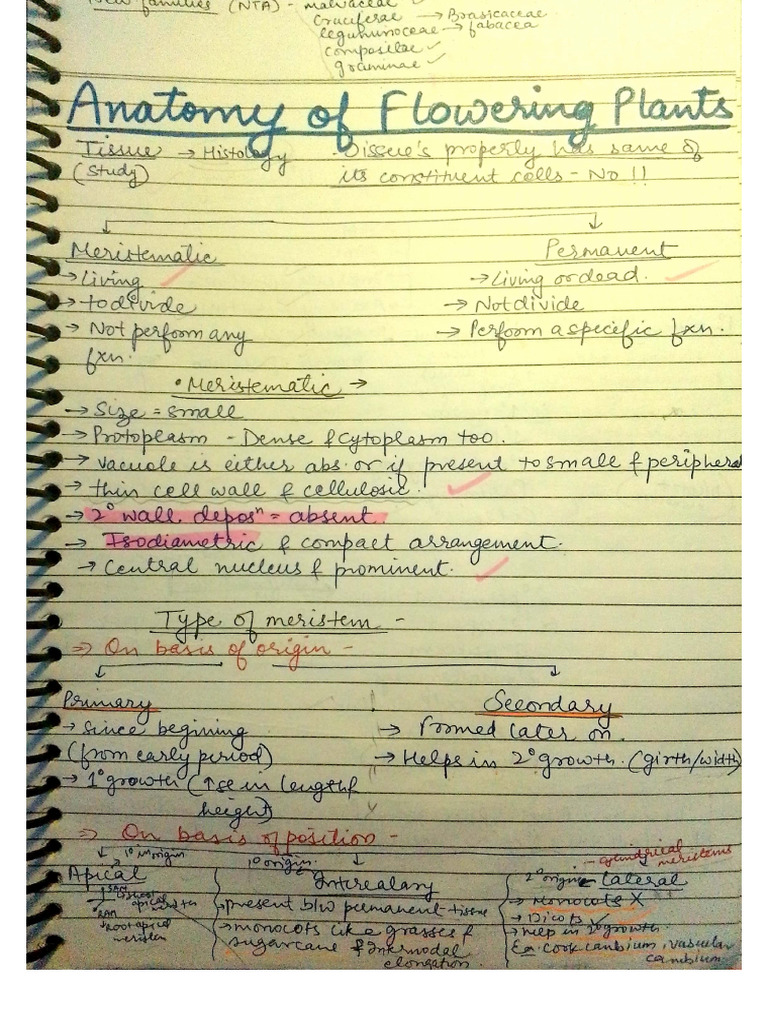 families (NTA) - malvaceae
Cruciferae → Brasicaceae
leguminoceae → fabacea
compositae ✓
graminae ✓
Anatomy of Flowering Plants
Tissue → Histology
(Study)
- Tissue's property has same of
its constituent cells - No !!
Meristematic
→ Living
→ to divide
→ Not perform any
fxn.
Permanent
→ Living or dead.
→ Not divide
→ Perform a specific fxn.
• Meristematic →
→ Size = small
→ Protoplasm - Dense & cytoplasm too.
→ vacuole is either abs. or if present to small & peripheral
→ thin cell wall & cellulosic.
→ 2° wall deposⁿ = absent
→ Isodiametric & compact arrangement.
→ Central nucleus & prominent.
Type of meristem -
⇒ On basis of origin -
Primary
→ since begining
(from early period)
→ 1° growth (↑se in length &
height)
Secondary
→ Formed later on.
→ Helps in 2° growth. (girth/width)
⇒ On basis of position -
→ 1° in origin
Apical
→ SAM
shoot apical meristem
→ RAM
→ Root apical
meristem
1° origin.
Intercalary
→ present b/w permanent tissue
→ monocots like grasses &
sugarcane & Internodal
elongation.
- cylindrical
meristems
2° origin - Lateral
→ Monocots X
→ Dicots ✓
→ help in 2° growth
Ex. Cork cambium, vascular
cambium